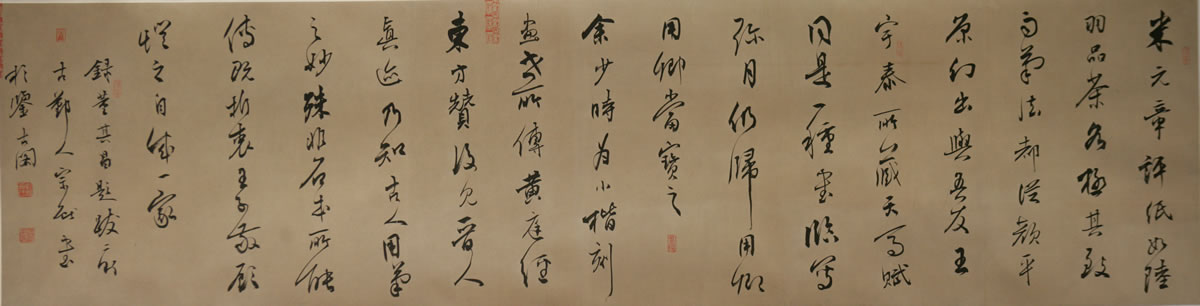 米元章評紙如陸
羽品茶各極其致
而筆法都從顏平
原幻出與吾友王
宇泰所藏天馬賦
同是一種書臨寫
彌月仍歸用卿
用卿當寶之
余少時為小楷刻
畫世所傳黃庭經
東方贊後見晉人
真迹乃知古人用筆
之妙殊非石本所能
傳既折衷王子敬顧
愷之自成一家
錄董其昌題跋二則
古人宗書
於鑒古